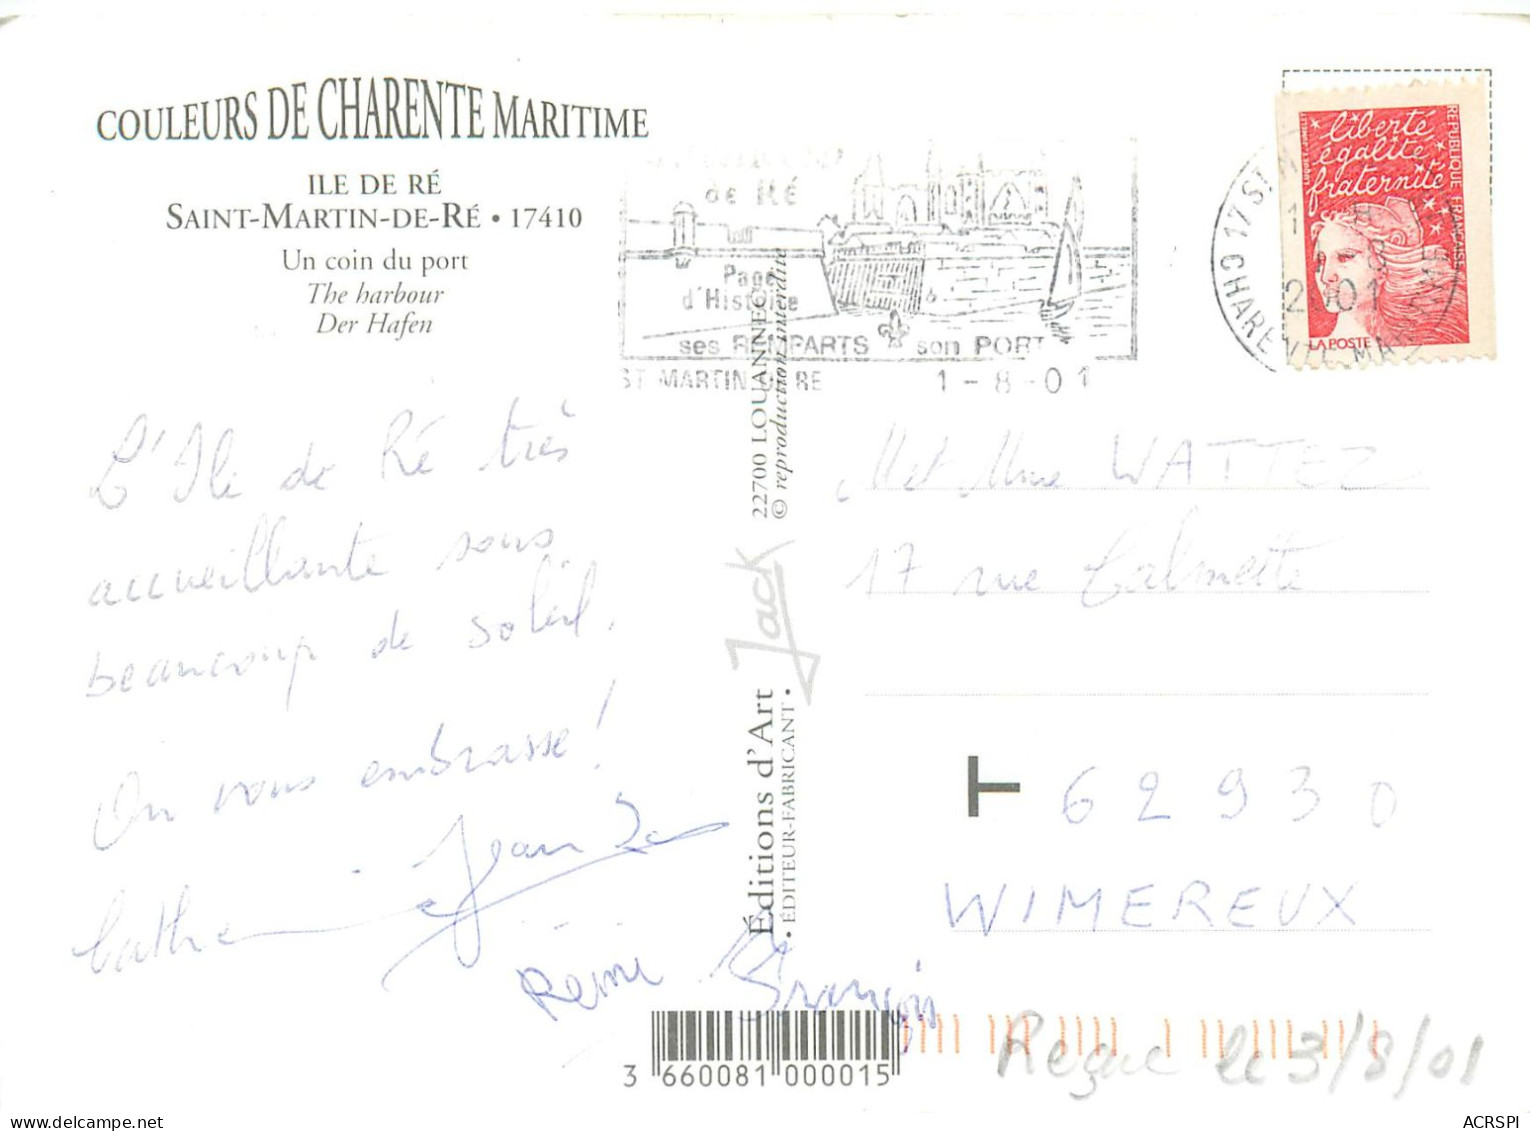 COULEURS DE CHARENTE MARITIME
ILE DE RÉ
SAINT-MARTIN-DE-RÉ • 17410
Un coin du port
The harbour
Der Hafen
de RÉ
Page
d'Histoire
ses REMPARTS son PORT
ST MARTIN DE RE 1-8-01
liberté
égalité
fraternité
REPUBLIQUE FRANÇAISE
LA POSTE
2001
L'Ile de Ré très
accueillante sous
beaucoup de soleil.
On vous embrasse!
Catherine Jean
Rémi François
22700 LOUANNEC
© reproduction interdite
Jack
Éditions d'Art
• ÉDITEUR-FABRICANT •
M et Mme WATTEZ
17 rue Calmette
T 62930
WIMEREUX
3 660081 000015
Reçue le 3/8/01
ACRSPI